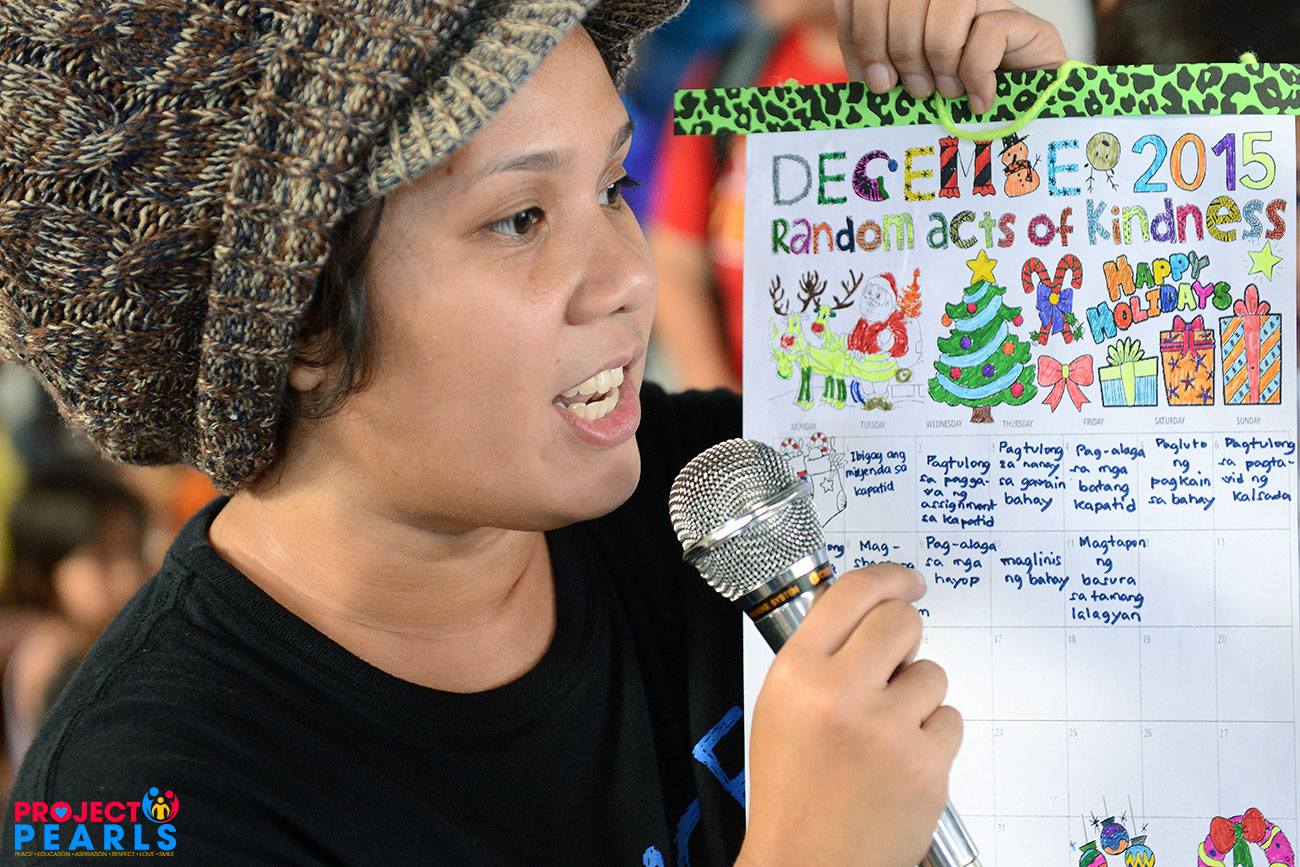 DECEMBER 2015
Random acts of kindness
HAPPY
HOLIDAYS
MONDAY TUESDAY WEDNESDAY THURSDAY FRIDAY SATURDAY SUNDAY
Ibigay ang
miryenda sa
kapatid
2
Pagtulong
sa pagga-
wa ng
assignment
sa kapatid
3
Pagtulong
sa nanay
sa gawain
bahay
4
Pag-alaga
sa mga
batang
kapatid
Pagluto
ng
pagkain
sa bahay
6
Pagtulong
sa pagta-
wid ng
kalsada
8
Mag-
9
Pag-alaga
sa mga
hayop
maglinis
ng bahay
Magtapon
ng
basura
sa tamang
lalagyan
12
13
17
18
19
20
24
25
26
27
31
PROJECT
PEARLS
PEACE • EDUCATION • ASPIRATION • RESPECT • LOVE • SMILE